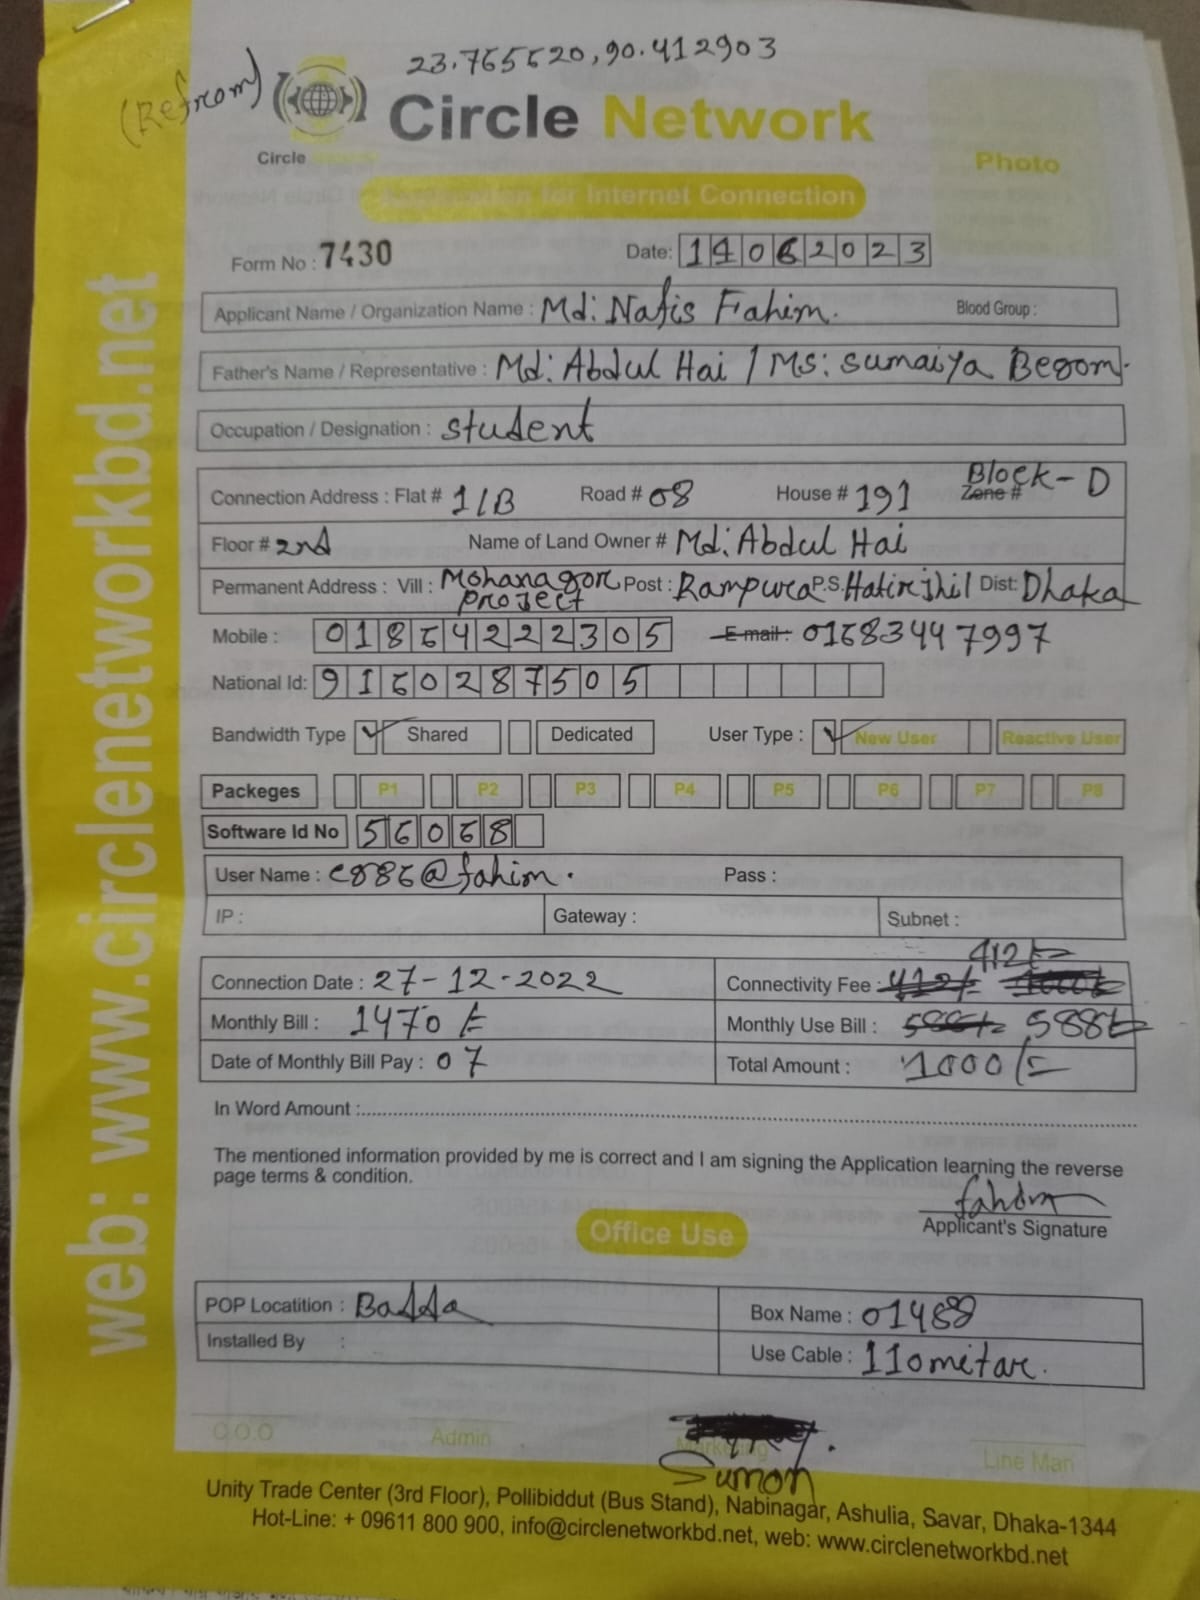 23.765620,90.412903
(Refrom)
Circle Network
Circle
Photo
for Internet Connection
Form No : 7430
Date: 14062023
Applicant Name / Organization Name : Md: Nafis Fahim. Blood Group :
Father's Name / Representative : Md: Abdul Hai / Ms: Sumaiya Begom.
Occupation / Designation : Student
Connection Address : Flat # 1/B Road # 08 House # 191 Zone # Block - D
Floor # 2nd Name of Land Owner # Md: Abdul Hai
Permanent Address : Vill : Mohanagor Project Post : Rampura P.S. Hatirjhil Dist: Dhaka
Mobile : 01864222305 E-mail : 01683447997
National Id: 9160287505
Bandwidth Type Shared Dedicated User Type : New User Reactive User
Packeges P1 P2 P3 P4 P5 P6 P7 P8
Software Id No 56068
User Name : c886@fahim. Pass :
IP : Gateway : Subnet :
Connection Date : 27-12-2022 Connectivity Fee : 412/= 412/=
Monthly Bill : 1470/= Monthly Use Bill : 588/= 588/=
Date of Monthly Bill Pay : 07 Total Amount : 1000/=
In Word Amount :
The mentioned information provided by me is correct and I am signing the Application learning the reverse
page terms & condition.
fahim
Applicant's Signature
Office Use
POP Locatition : Badda Box Name : 01488
Installed By : Use Cable : 110mitar.
C.O.O Admin Marketing Line Man
Sumon
Unity Trade Center (3rd Floor), Pollibiddut (Bus Stand), Nabinagar, Ashulia, Savar, Dhaka-1344
Hot-Line: + 09611 800 900, info@circlenetworkbd.net, web: www.circlenetworkbd.net
web: www.circlenetworkbd.net